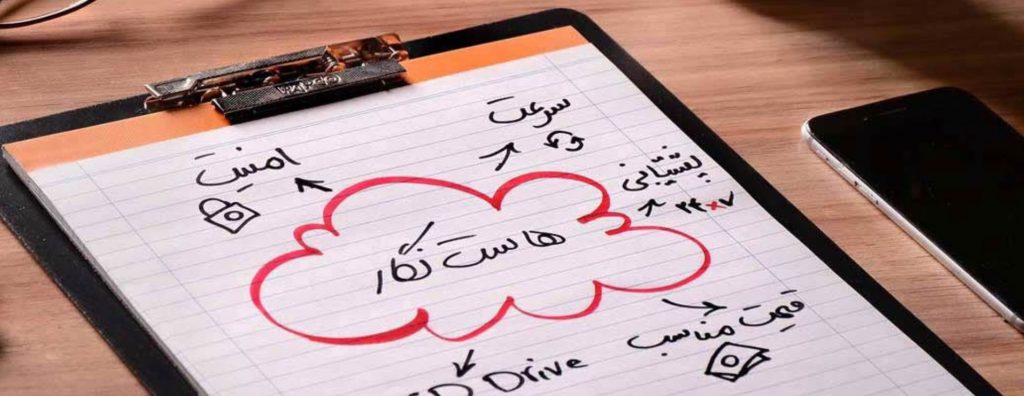 سرعت
امنیت
پشتیبانی
۲۴×۷
هاست نگار
قیمت مناسب
Drive